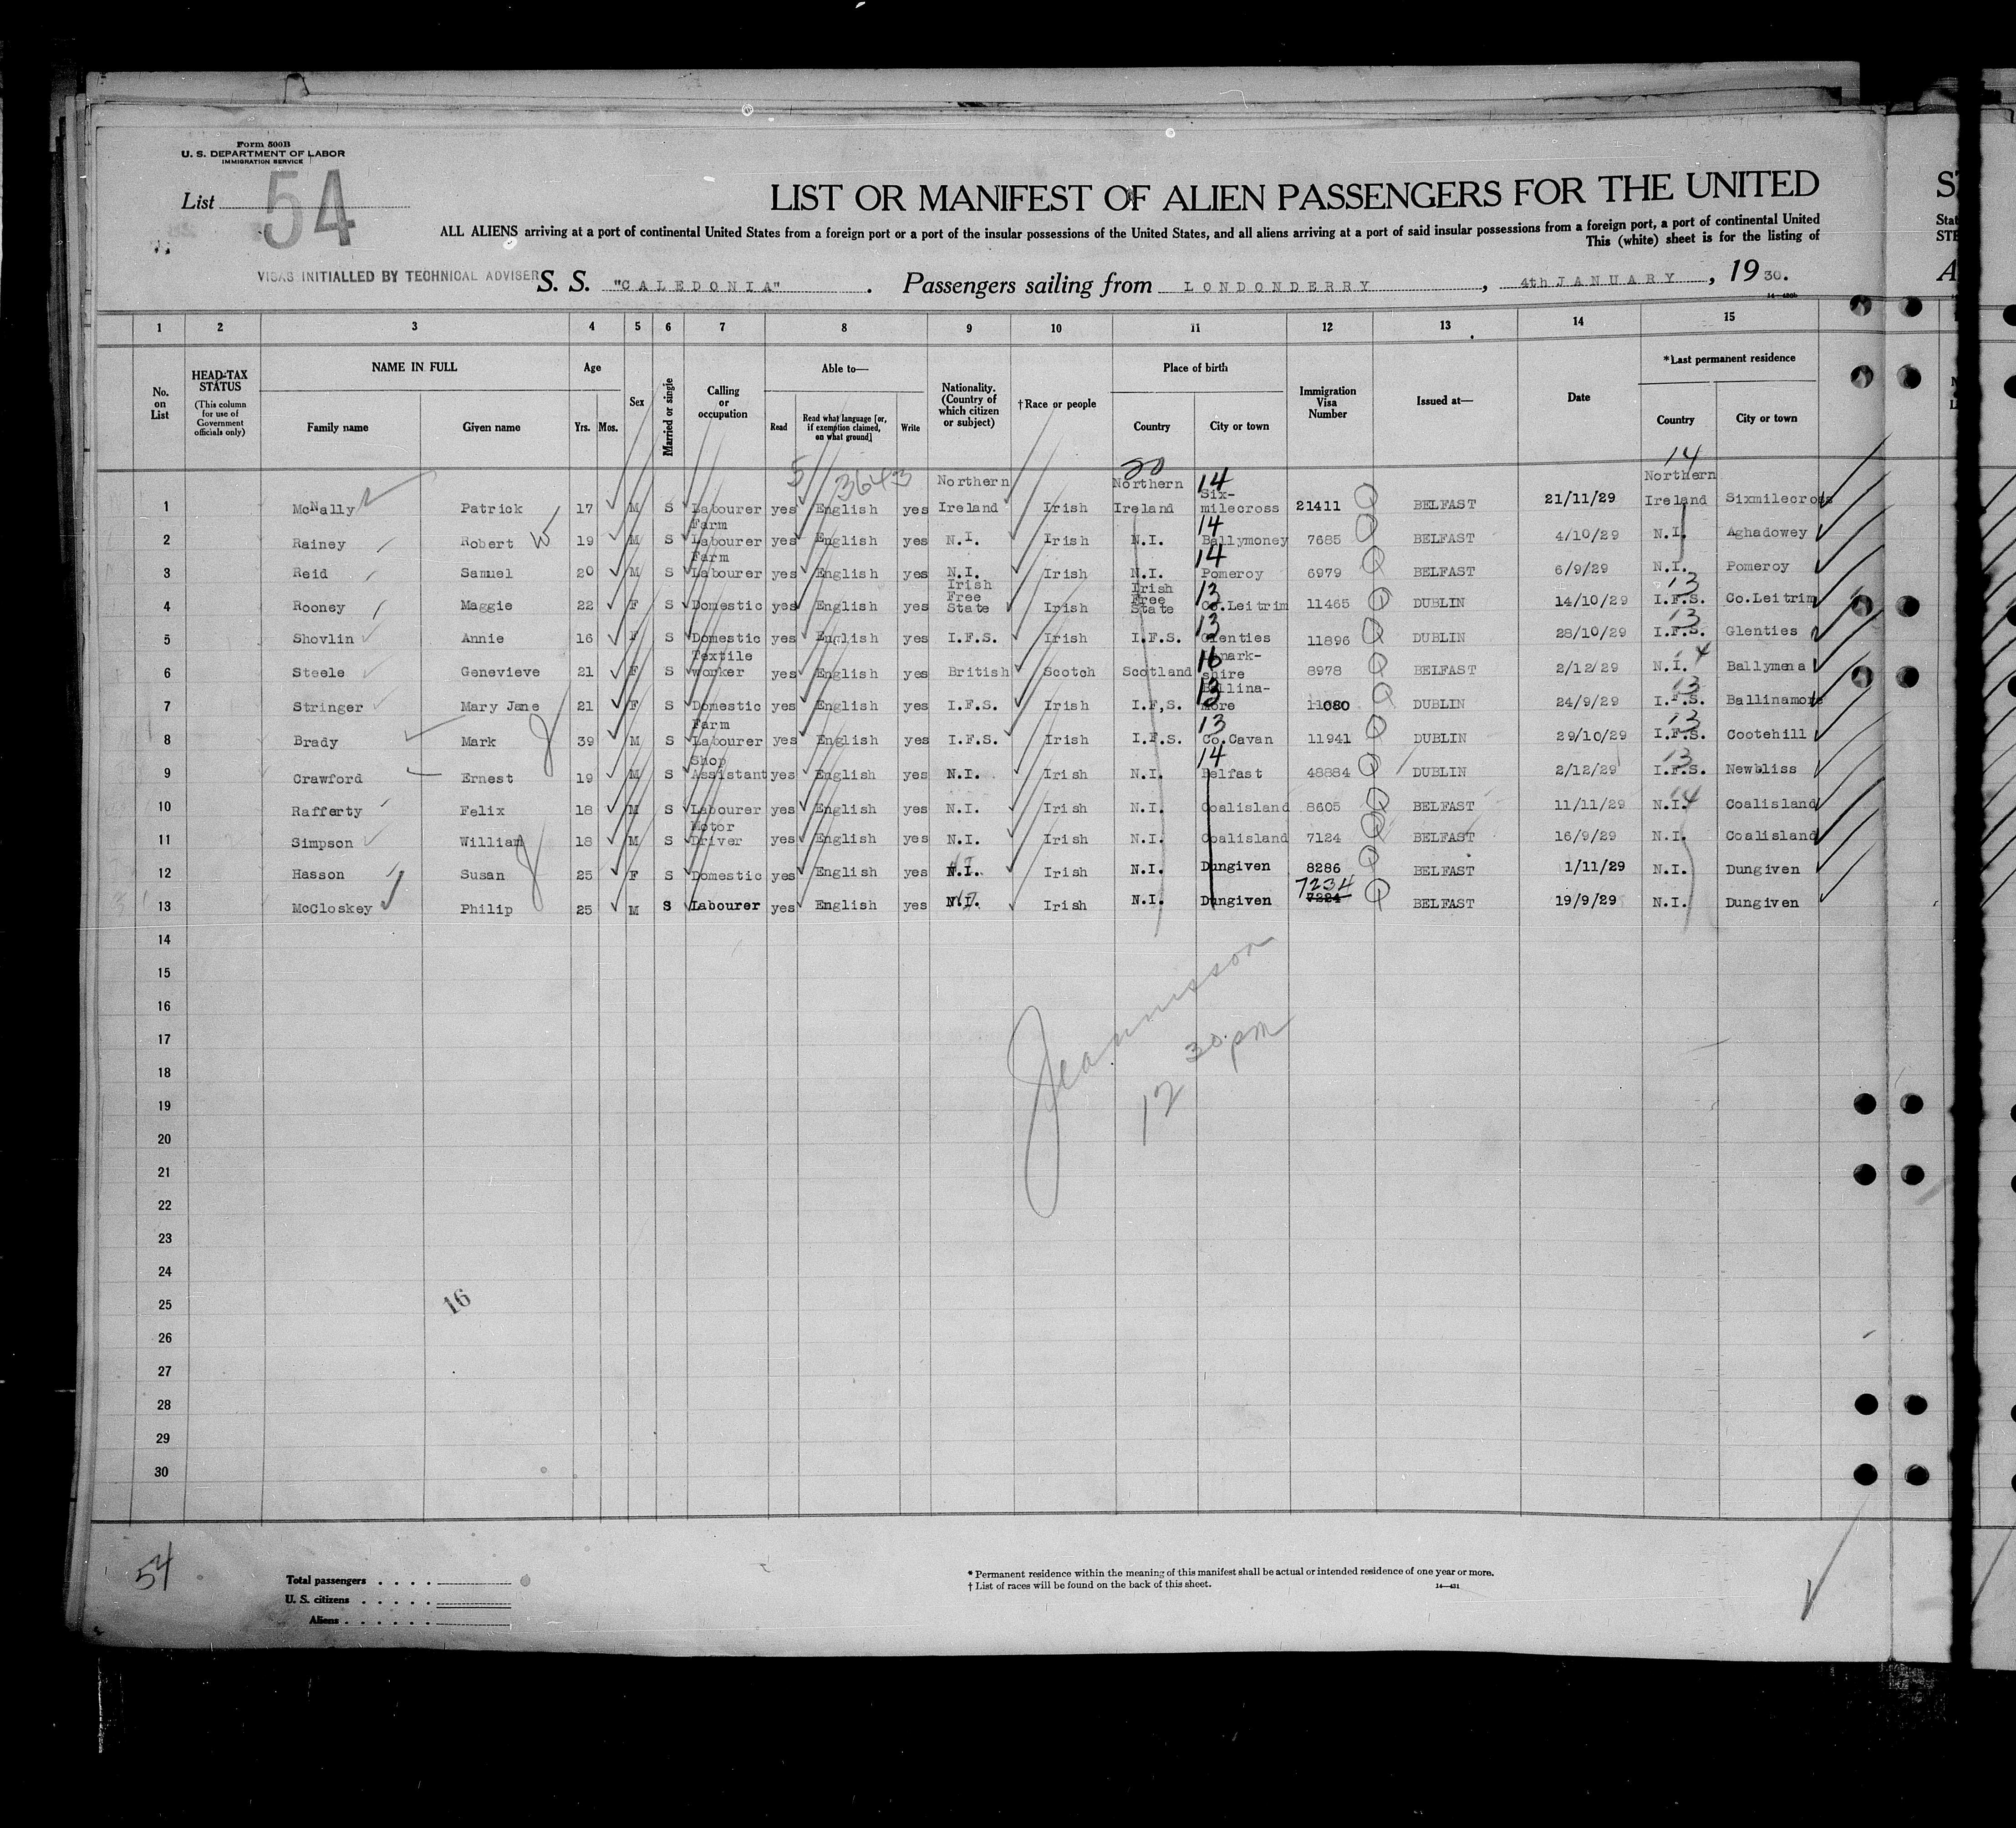 Form 500B
U. S. DEPARTMENT OF LABOR
IMMIGRATION SERVICE
List 54
LIST OR MANIFEST OF ALIEN PASSENGERS FOR THE UNITED
ALL ALIENS arriving at a port of continental United States from a foreign port or a port of the insular possessions of the United States, and all aliens arriving at a port of said insular possessions from a foreign port, a port of continental United
This (white) sheet is for the listing of
VISAS INITIALLED BY TECHNICAL ADVISER
S. S. "CALEDONIA" . Passengers sailing from LONDONDERRY , 4th JANUARY , 19 30.
1 2 3 4 5 6 7 8 9 10 11 12 13 14 15
No. on List
HEAD-TAX STATUS (This column for use of Government officials only)
NAME IN FULL Family name Given name
Age Yrs. Mos.
Sex
Married or single
Calling or occupation
Able to— Read Read what language [or, if exemption claimed, on what ground] Write
Nationality. (Country of which citizen or subject)
†Race or people
Place of birth Country City or town
Immigration Visa Number
Issued at—
Date
*Last permanent residence Country City or town
5 3643 20 14 14
1 McNally Patrick 17 M S Labourer yes English yes Northern Ireland Irish Northern Ireland Six-milecross 21411 BELFAST 21/11/29 Northern Ireland Sixmilecross
2 Rainey Robert W 19 M S Farm Labourer yes English yes N.I. Irish N.I. 14 Ballymoney 7685 BELFAST 4/10/29 N.I. Aghadowey
3 Reid Samuel 20 M S Farm Labourer yes English yes N.I. Irish N.I. 14 Pomeroy 6979 BELFAST 6/9/29 N.I. Pomeroy
4 Rooney Maggie 22 F S Domestic yes English yes Irish Free State Irish Irish Free State 13 Co.Leitrim 11465 DUBLIN 14/10/29 13 I.F.S. Co.Leitrim
5 Shovlin Annie 16 F S Domestic yes English yes I.F.S. Irish I.F.S. 13 Glenties 11896 DUBLIN 28/10/29 13 I.F.S. Glenties
6 Steele Genevieve 21 F S Textile worker yes English yes British Scotch Scotland 16 Lanark-shire 8978 BELFAST 2/12/29 N.I. 4 Ballymena
7 Stringer Mary Jane 21 F S Domestic yes English yes I.F.S. Irish I.F,S. 13 Ballina-more 11080 DUBLIN 24/9/29 13 I.F.S. Ballinamore
8 Brady Mark 39 M S Farm Labourer yes English yes I.F.S. Irish I.F.S. 13 Co.Cavan 11941 DUBLIN 29/10/29 13 I.F.S. Cootehill
9 Crawford Ernest 19 M S Shop Assistant yes English yes N.I. Irish N.I. 14 Belfast 48884 DUBLIN 2/12/29 13 I.F.S. Newbliss
10 Rafferty Felix 18 M S Labourer yes English yes N.I. Irish N.I. Coalisland 8605 BELFAST 11/11/29 N.I. 14 Coalisland
11 Simpson William 18 M S Motor Driver yes English yes N.I. Irish N.I. Coalisland 7124 BELFAST 16/9/29 N.I. Coalisland
12 Hasson Susan 25 F S Domestic yes English yes N.I. Irish N.I. Dungiven 8286 BELFAST 1/11/29 N.I. Dungiven
13 McCloskey Philip 25 M S Labourer yes English yes N.I. Irish N.I. Dungiven 7234 7224 BELFAST 19/9/29 N.I. Dungiven
14
15
16
17
18
19
20
21
22
23
24
25
26
27
28
29
30
12 30 pm
16
54
Total passengers
U. S. citizens
Aliens
* Permanent residence within the meaning of this manifest shall be actual or intended residence of one year or more.
† List of races will be found on the back of this sheet.
14—431